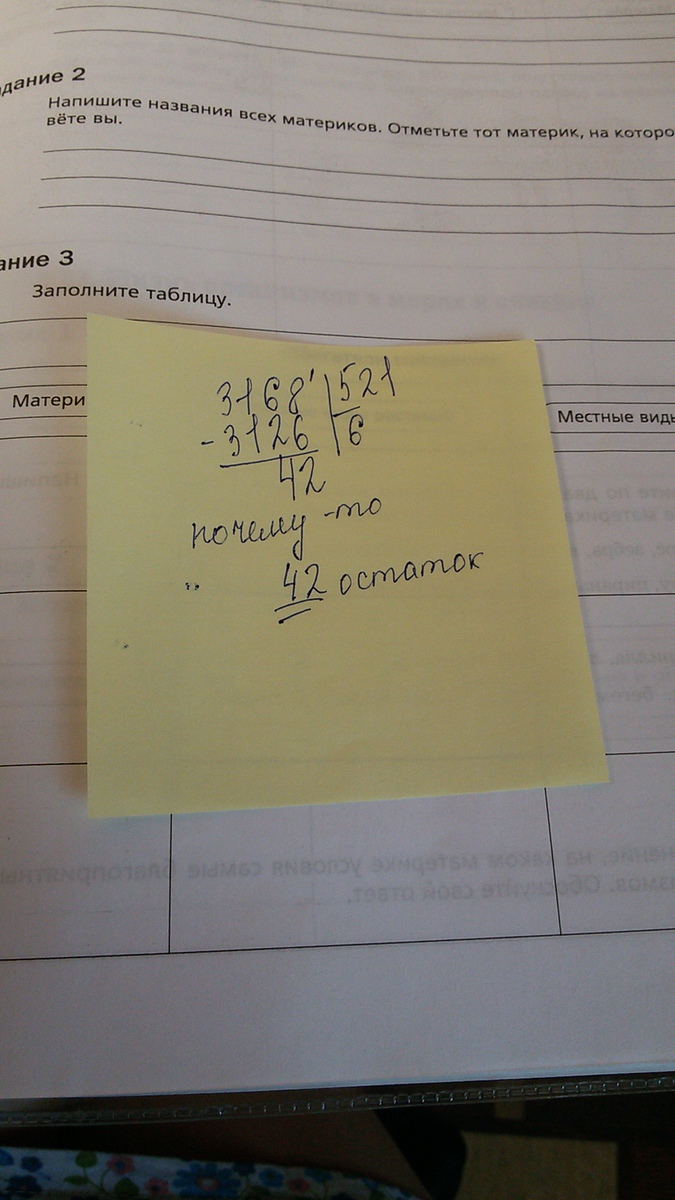 дание 2
Напишите названия всех материков. Отметьте тот материк, на которо
вёте вы.
ание 3
Заполните таблицу.
Матери
Местные виды
3168' 521
- 3126 6
42
почему-то
42 остаток